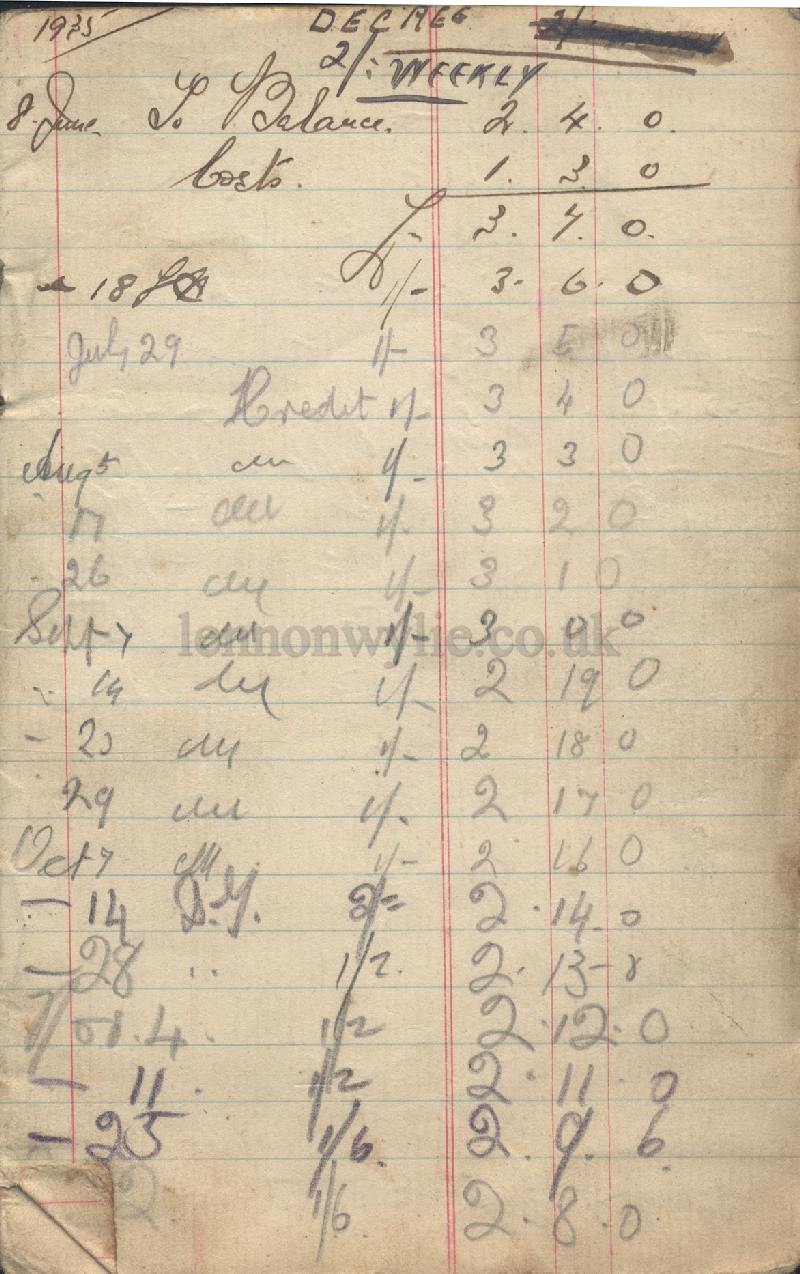 1935 DECREE 2/-
2/- WEEKLY
8 June. To Balance. 2. 4. 0.
Costs. 1. 3. 0
3. 7. 0.
18 1/- 3. 6. 0
July 29 1/- 3 5 0
Credit 1/- 3 4 0
Aug 5 1/- 3 3 0
1/- 3 2 0
26 1/- 3 1 0
Sept 7 1/- 3 0 0
lennonwylie.co.uk
14 1/- 2 19 0
1/- 2 18 0
29 1/- 2 17 0
Oct 7 1/- 2 16 0
- 14 2/= 2. 14. 0
- 28 " 1/2. 2. 13 -
4. 1/2 2. 12. 0
- 11. 1/2 2. 11 0
- 25 1/6. 2. 9. 6.
2 1/6 2. 8. 0